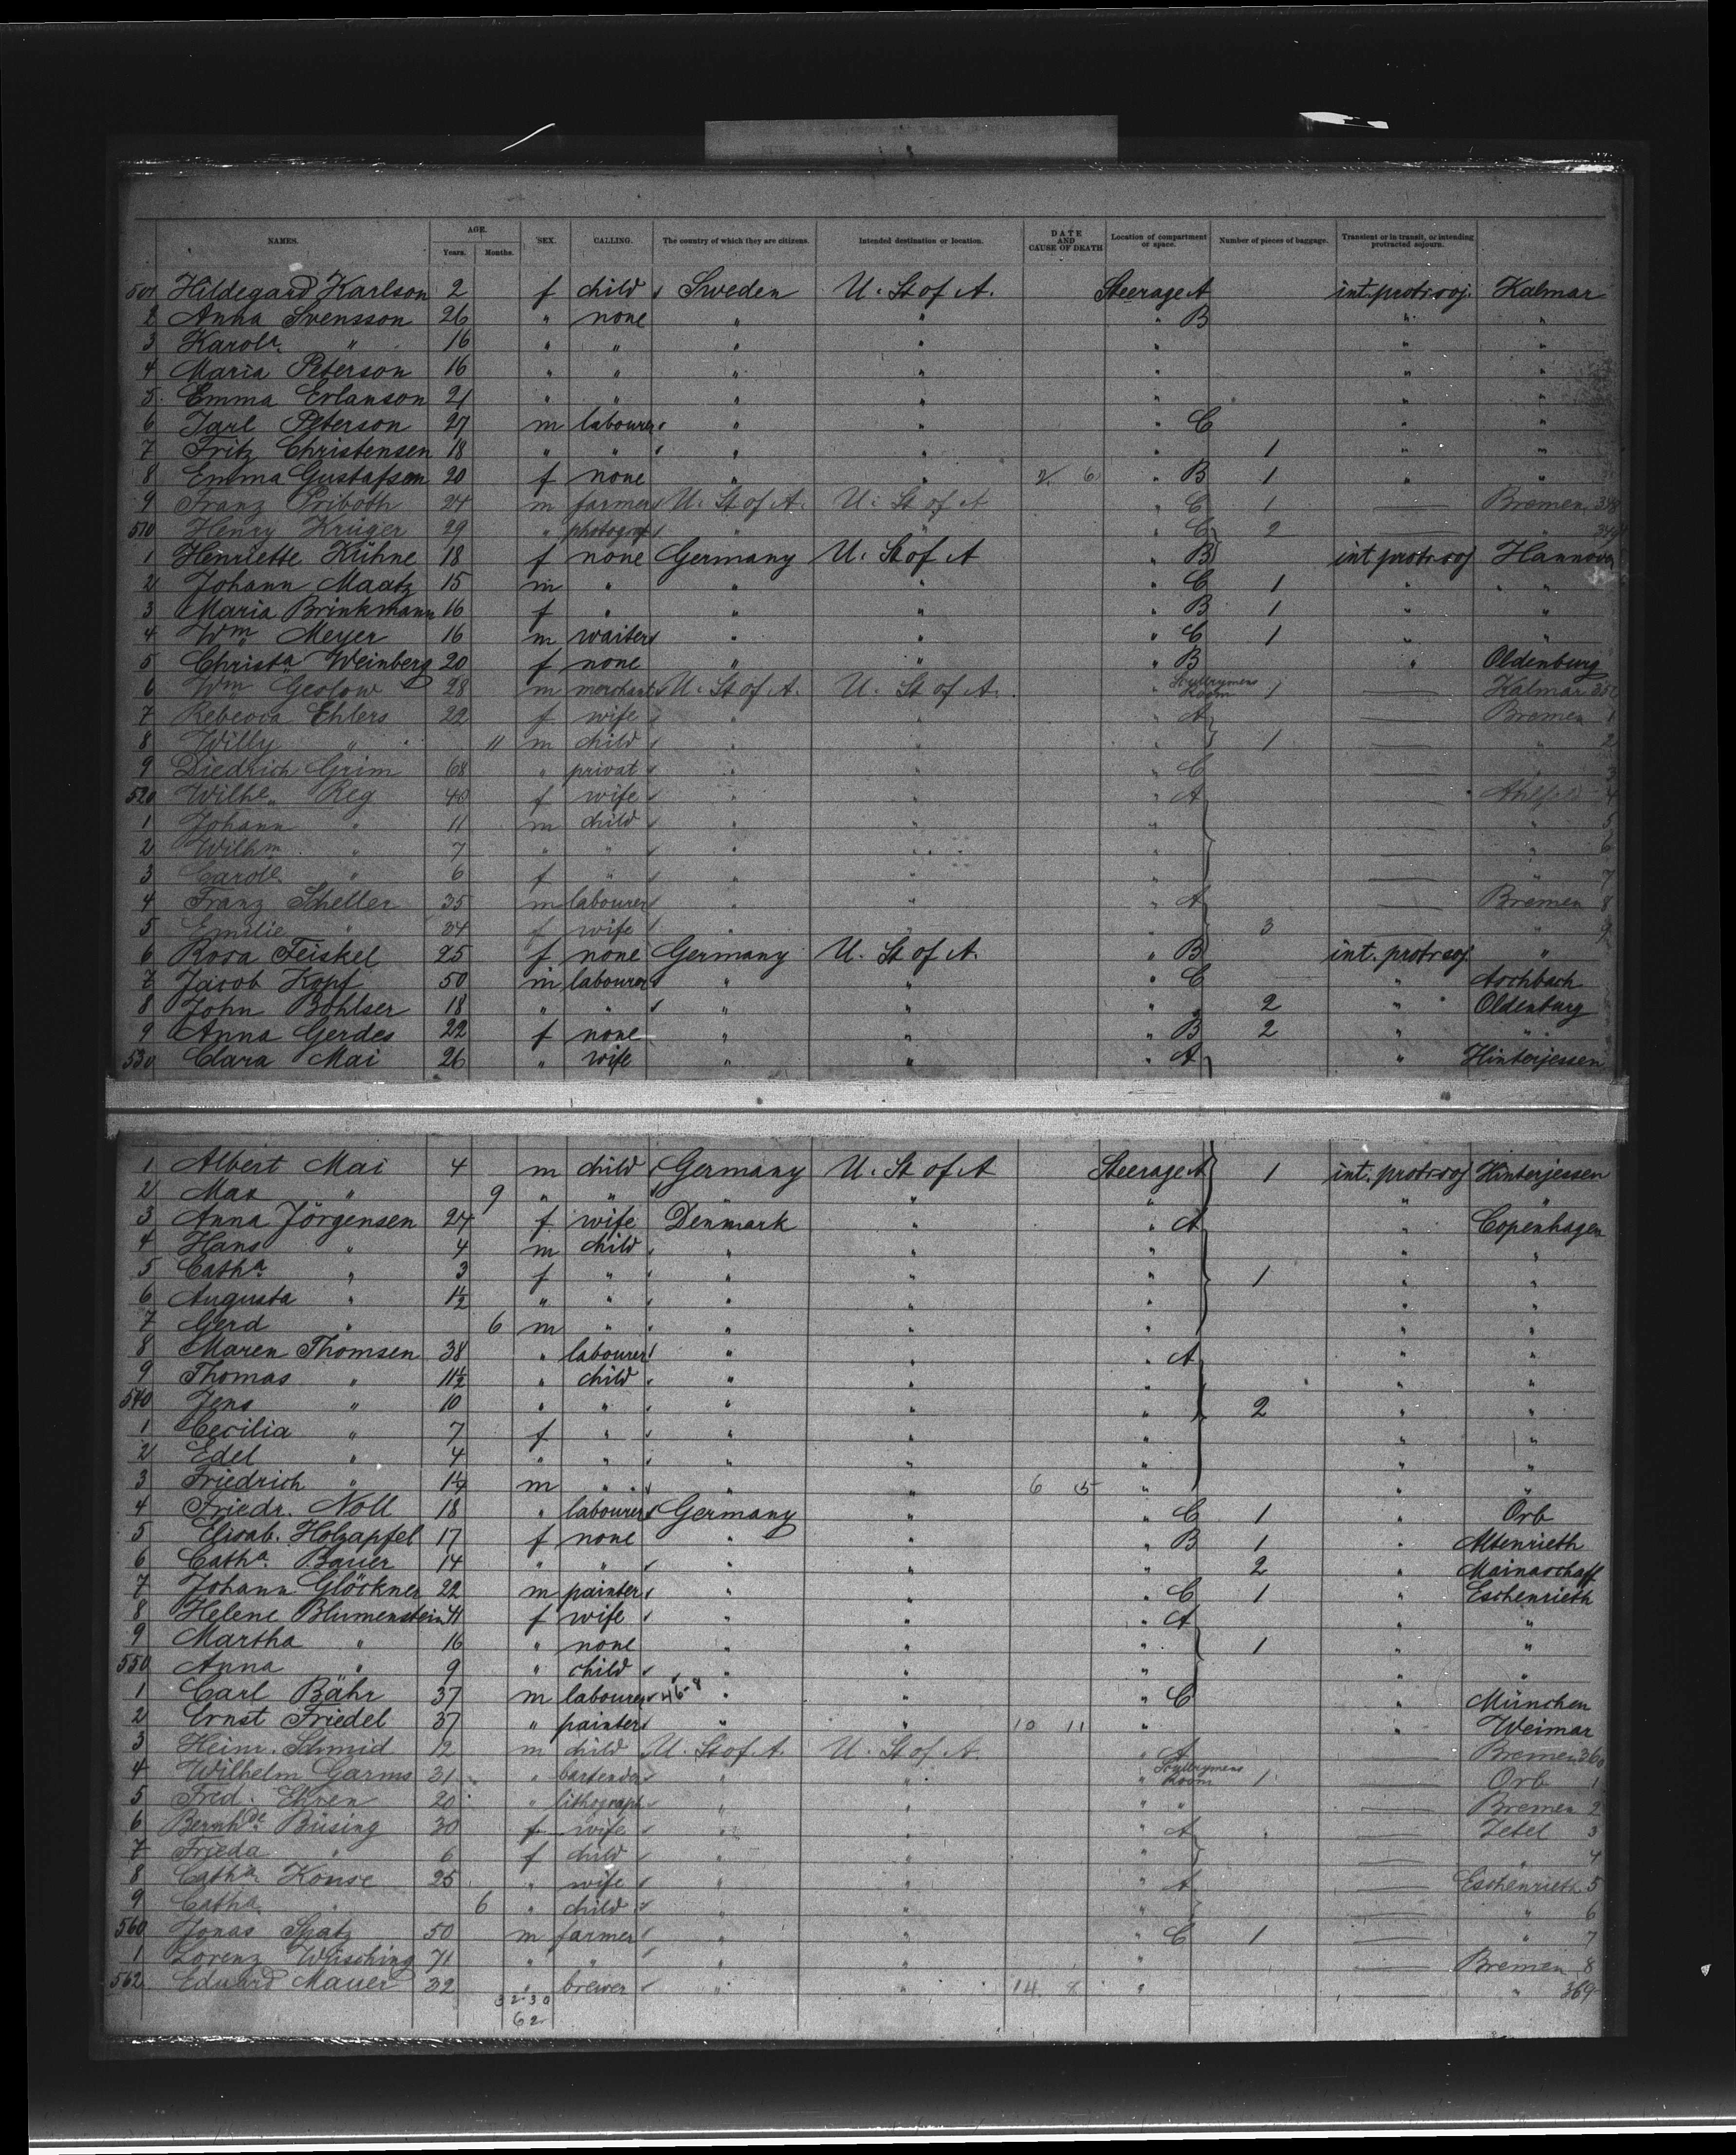 NAMES. AGE. Years. Months. SEX. CALLING. The country of which they are citizens. Intended destination or location. DATE AND CAUSE OF DEATH Location of compartment or space. Number of pieces of baggage. Transient or in transit, or intending protracted sojourn.
501 Hildegard Karlson 2 f child Sweden U. St of A. Steerage A int. protr. soj. Kalmar
2 Anna Svensson 26 " none " " " B " "
3 Karola " 16 " " " " " " "
4 Maria Peterson 16 " " " " " " "
5 Emma Erlanson 21 " " " " " " "
6 Jarl Peterson 27 m labourer " " " C " "
7 Fritz Christensen 18 " " " " " 1 " "
8 Emma Gustafson 20 f none " " 2 6 " B 1 " "
9 Franz 24 m farmer U. St of A. U. St of A " C 1 — Bremen 348
510 Henry Krüger 29 " photogr " " " C 2 — " 349
1 Henriette Kühne 18 f none Germany U. St of A " B int protr soj Hannover
2 Johann Maatz 15 m " " " " C 1 " "
3 Maria Brinkmann 16 f " " " " B 1 " "
4 Wm Meyer 16 m waiter " " " C 1 " "
5 Christa Weinberg 20 f none " " " B " Oldenburg
6 Wm Geolow 28 m merchant U. St of A. U. St of A. " Room 1 — Kalmar 350
7 Rebecca Ehlers 22 f wife " " " A — Bremen 1
8 Willy " 11 m child " " " 1 — " 2
9 Diedrich Grim 68 " privat " " " C — 3
520 Wilhe. Reg 40 f wife " " " A — 4
1 Johann " 11 m child " " " — " 5
2 Wilhm " 7 " " " " " — " 6
3 Carole " 6 f " " " " — " 7
4 Franz Scheller 35 m labourer " " " A — Bremen 8
5 Emilie " 34 f wife " " " 3 — " 9
6 Rosa Feiskel 25 f none Germany U. St of A. " B int. protr soj "
7 Jacob Kopf 50 m labourer " " " C " Aschbach
8 John Bohlser 18 " " " " " 2 " Oldenburg
9 Anna Gerdes 22 f none " " " B 2 " "
530 Clara Mai 26 " wife " " " A " Hinterjessen
1 Albert Mai 4 m child Germany U. St of A Steerage A 1 int. protr soj Hinterjessen
2 Max " 9 " " " " " " "
3 Anna Jörgensen 24 f wife Denmark " " A " Copenhagen
4 Hans " 4 m child " " " " "
5 Catha " 3 f " " " " 1 " "
6 Augusta " 1½ " " " " " " "
7 Gerd " 6 m " " " " " "
8 Maren Thomsen 38 " labourer " " " A " "
9 Thomas " 11½ " child " " " " "
540 Jens " 10 " " " " " 2 " "
1 Cecilia " 7 f " " " " " "
2 Edel " 4 " " " " " " "
3 Friedrich " 1¼ m " " " 6 5 " " "
4 Friedr. Noll 18 " labourer Germany " " C 1 " Orb
5 Elisab. Holzapfel 17 f none " " " B 1 " Altenrieth
6 Catha Bauer 14 " " " " " 2 " Mainaschaff
7 Johann Glöckner 22 m painter " " " C 1 " Eschenrieth
8 Helene Blumenstein 41 f wife " " " A " "
9 Martha " 16 " none " " " 1 " "
550 Anna " 9 " child " " " " "
1 Carl Bähr 37 m labourer 46-8 " " " C " München
2 Ernst Friedel 37 " painter " " 10 11 " " Weimar
3 Heinr. Schmid 12 m child U. St of A. U. St of A. " A — Bremen 360
4 Wilhelm Garms 31 " bartender " " " Room 1 — Orb 1
5 Fred. Ehren 20 " lithograph " " " " — Bremen 2
6 Bernhde Büsing 30 f wife " " " A — Zetel 3
7 Frieda " 6 f child " " " — " 4
8 Catha Konse 25 " wife " " " A — Eschenrieth 5
9 Catha " 6 " child " " " — " 6
560 Jonas Spatz 50 m farmer " " " C 1 — " 7
1 Lorenz Wüsching 71 " " " " " — Bremen 8
562 Eduard Mauer 32 " brewer " " 14 8 " — " 369
32.30
62